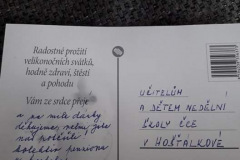 Radostné prožití
velikonočních svátků,
hodně zdraví, štěstí
a pohodu
Vám ze srdce přeje
a za milé dárky
děkujeme,
kolektiv penzionu
UČITELŮM
A DĚTEM NEDĚLNÍ
ŠKOLY ČCE
V HOŠŤÁLKOVÉ